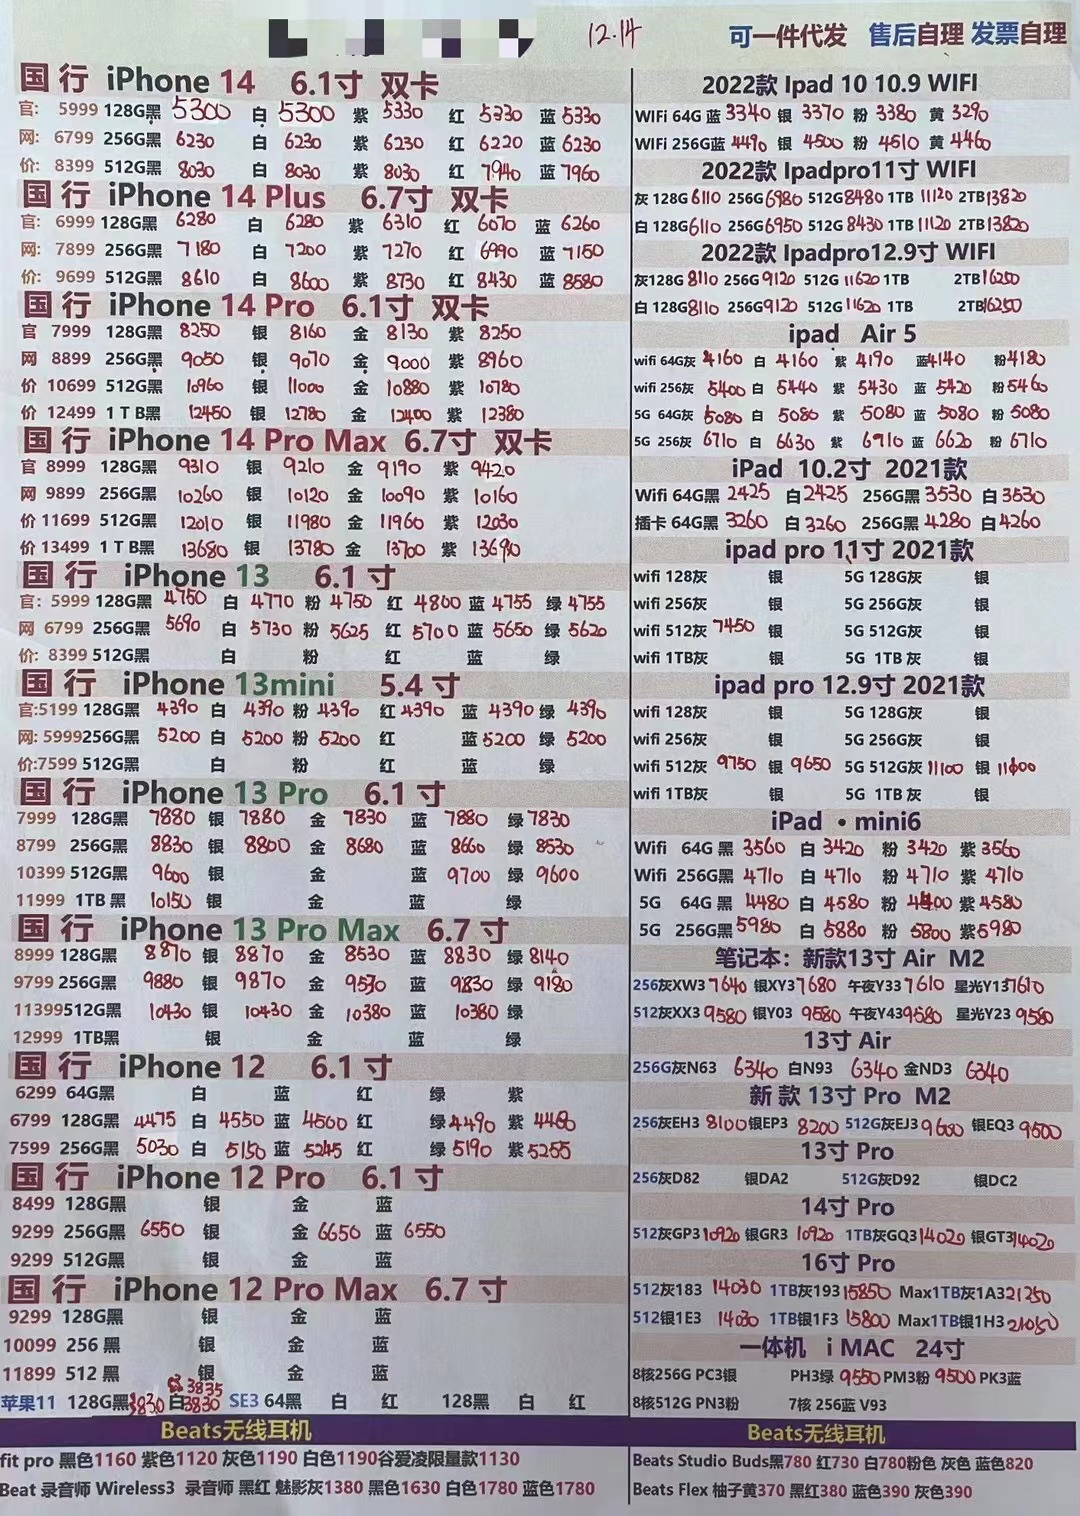 12.14
可一件代发 售后自理 发票自理
国行 iPhone 14 6.1寸 双卡
官: 5999 128G黑 5300 白 5300 紫 5330 红 5330 蓝 5330
网: 6799 256G黑 6230 白 6230 紫 6230 红 6220 蓝 6230
价: 8399 512G黑 8030 白 8030 紫 8030 红 7940 蓝 7960
国行 iPhone 14 Plus 6.7寸 双卡
官: 6999 128G黑 6280 白 6280 紫 6310 红 6070 蓝 6260
网: 7899 256G黑 7180 白 7200 紫 7270 红 6990 蓝 7150
价: 9699 512G黑 8610 白 8600 紫 8730 红 8430 蓝 8580
国行 iPhone 14 Pro 6.1寸 双卡
官 7999 128G黑 8250 银 8160 金 8130 紫 8250
网 8899 256G黑 9050 银 9070 金 9000 紫 8960
价 10699 512G黑 10960 银 11000 金 10880 紫 10780
价 12499 1 T B黑 12450 银 12780 金 12400 紫 12380
国行 iPhone 14 Pro Max 6.7寸 双卡
官 8999 128G黑 9310 银 9210 金 9190 紫 9420
网 9899 256G黑 10260 银 10120 金 10090 紫 10160
价 11699 512G黑 12010 银 11980 金 11960 紫 12030
价 13499 1 T B黑 13680 银 13780 金 13700 紫 13690
国行 iPhone 13 6.1寸
官: 5999 128G黑 4750 白 4770 粉 4750 红 4800 蓝 4755 绿 4755
网 6799 256G黑 5690 白 5730 粉 5625 红 5700 蓝 5650 绿 5620
价: 8399 512G黑 白 粉 红 蓝 绿
国行 iPhone 13mini 5.4寸
官:5199 128G黑 4390 白 4390 粉 4390 红 4390 蓝 4390 绿 4390
网: 5999256G黑 5200 白 5200 粉 5200 红 蓝 5200 绿 5200
价:7599 512G黑 白 粉 红 蓝 绿
国行 iPhone 13 Pro 6.1寸
7999 128G黑 7880 银 7880 金 7830 蓝 7880 绿 7830
8799 256G黑 8830 银 8800 金 8680 蓝 8660 绿 8530
10399 512G黑 9600 银 金 蓝 9700 绿 9600
11999 1TB 黑 10150 银 金 蓝 绿
国行 iPhone 13 Pro Max 6.7寸
8999 128G黑 8870 银 8870 金 8530 蓝 8830 绿 8140
9799 256G黑 9880 银 9870 金 9570 蓝 9830 绿 9180
11399512G黑 10430 银 10430 金 10380 蓝 10380 绿
12999 1TB黑 银 金 蓝 绿
国行 iPhone 12 6.1寸
6299 64G黑 白 蓝 红 绿 紫
6799 128G黑 4475 白 4550 蓝 4500 红 绿 4490 紫 4460
7599 256G黑 5030 白 5150 蓝 5245 红 绿 5190 紫 5255
国行 iPhone 12 Pro 6.1寸
8499 128G黑 银 金 蓝
9299 256G黑 6550 银 金 6650 蓝 6550
9299 512G黑 银 金 蓝
国行 iPhone 12 Pro Max 6.7寸
9299 128G黑 银 金 蓝
10099 256 黑 银 金 蓝
11899 512 黑 银 金 蓝
3835
苹果11 128G黑 3830 白 3830 SE3 64黑 白 红 128黑 白 红
Beats无线耳机
fit pro 黑色1160 紫色1120 灰色1190 白色1190谷爱凌限量款1130
Beat 录音师 Wireless3 录音师 黑红 魅影灰1380 黑色1630 白色1780 蓝色1780
2022款 Ipad 10 10.9 WIFI
WIFi 64G 蓝 3340 银 3370 粉 3380 黄 3290
WIFi 256G蓝 4490 银 4500 粉 4510 黄 4460
2022款 Ipadpro11寸 WIFI
灰 128G 6110 256G 6980 512G 8480 1TB 11120 2TB 13820
白 128G 6110 256G 6950 512G 8430 1TB 11120 2TB 13820
2022款 Ipadpro12.9寸 WIFI
灰128G 8110 256G 9120 512G 11620 1TB 2TB 16250
白 128G 8110 256G 9120 512G 11620 1TB 2TB 16250
ipad Air 5
wifi 64G灰 4160 白 4160 紫 4190 蓝 4140 粉 4180
wifi 256灰 5400 白 5440 紫 5430 蓝 5420 粉 5460
5G 64G灰 5080 白 5080 紫 5080 蓝 5080 粉 5080
5G 256灰 6710 白 6630 紫 6910 蓝 6620 粉 6710
iPad 10.2寸 2021款
Wifi 64G黑 2425 白 2425 256G黑 3530 白 3530
插卡 64G黑 3260 白 3260 256G黑 4280 白 4260
ipad pro 11寸 2021款
wifi 128灰 银 5G 128G灰 银
wifi 256灰 银 5G 256G灰 银
wifi 512灰 7450 银 5G 512G灰 银
wifi 1TB灰 银 5G 1TB 灰 银
ipad pro 12.9寸 2021款
wifi 128灰 银 5G 128G灰 银
wifi 256灰 银 5G 256G灰 银
wifi 512灰 9750 银 9650 5G 512G灰 11100 银 11000
wifi 1TB灰 银 5G 1TB 灰 银
iPad • mini6
Wifi 64G 黑 3560 白 3420 粉 3420 紫 3560
Wifi 256G黑 4710 白 4710 粉 4710 紫 4710
5G 64G 黑 4480 白 4580 粉 4400 紫 4580
5G 256G黑 5980 白 5880 粉 5800 紫 5980
笔记本：新款13寸 Air M2
256灰XW3 7640 银XY3 7680 午夜Y33 7610 星光Y13 7610
512灰XX3 9580 银Y03 9580 午夜Y43 9580 星光Y23 9580
13寸 Air
256G灰N63 6340 白N93 6340 金ND3 6340
新 款 13寸 Pro M2
256灰EH3 8100 银EP3 8200 512G灰EJ3 9600 银EQ3 9500
13寸 Pro
256灰D82 银DA2 512G灰D92 银DC2
14寸 Pro
512灰GP3 10920 银GR3 10920 1TB灰GQ3 14020 银GT3 14020
16寸 Pro
512灰183 14030 1TB灰193 15850 Max1TB灰1A3 21250
512银1E3 14030 1TB银1F3 15800 Max1TB银1H3 21050
一体机 i MAC 24寸
8核256G PC3银 PH3绿 9550 PM3粉 9500 PK3蓝
8核512G PN3粉 7核 256蓝 V93
Beats无线耳机
Beats Studio Buds黑780 红730 白780粉色 灰色 蓝色820
Beats Flex 柚子黄370 黑红380 蓝色390 灰色390